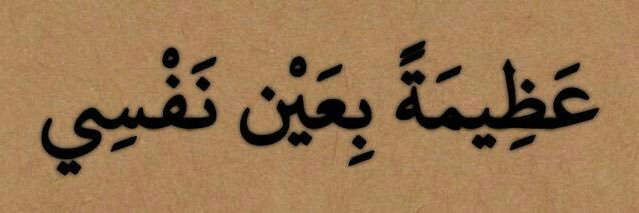 عَظِيمَةً بِعَيْن نَفْسِي